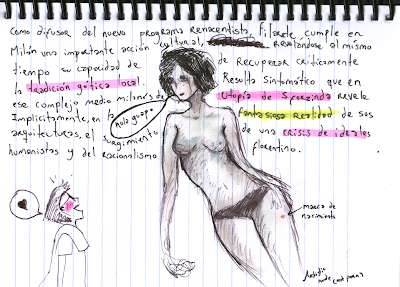 Como difusor del nuevo programa renacentista, Filarete cumple en
Milán una importante acción cultural, revelandose al mismo
tiempo su capacidad de recuperar críticamente
la tradición gótica local. Resulta sintomático que en
ese complejo medio milanés de Utopía de Sforzinda revele
Implícitamente, en la fantasiosa realidad de sus
arquitecturas, el surgimiento de una crisis de ideales
humanistas y del racionalismo florentino.
hola guapa
marca de
nacimiento